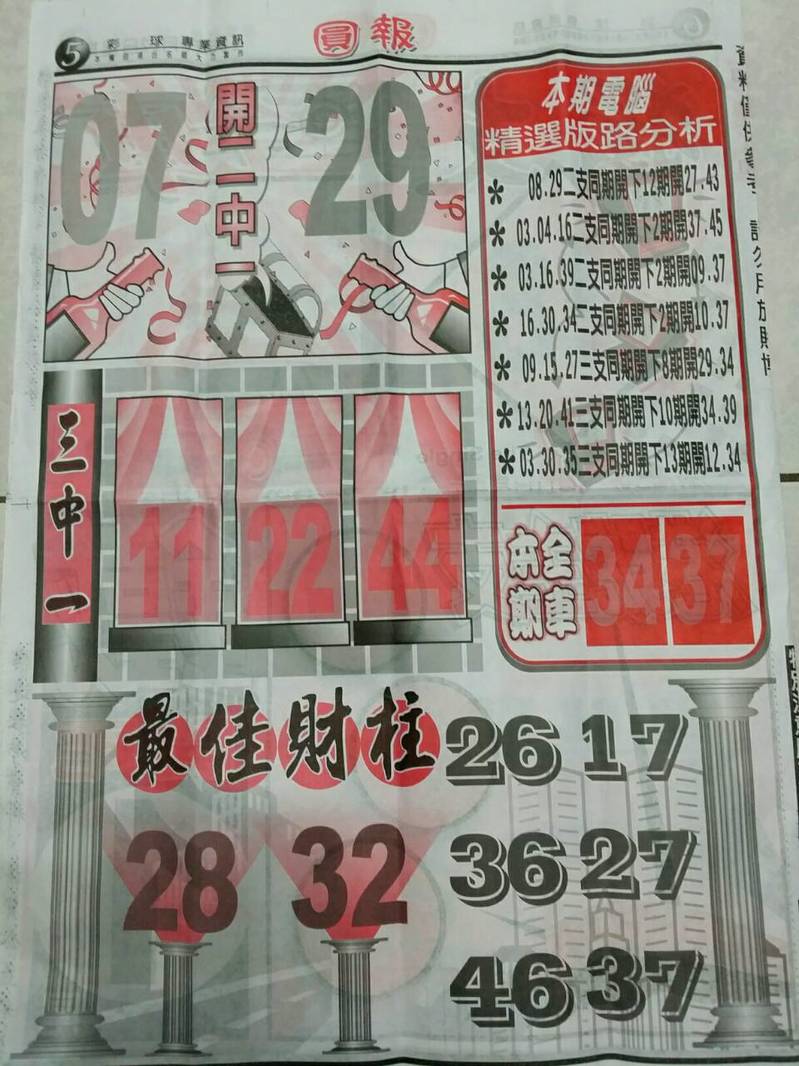 5 彩球專業資訊
圓報
07
開二中一
29
本期電腦
精選版路分析
* 08.29二支同期開下12期開27.43
* 03.04.16二支同期開下2期開37.45
* 03.16.39二支同期開下2期開09.37
* 16.30.34二支同期開下2期開10.37
* 09.15.27三支同期開下8期開29.34
* 13.20.41三支同期開下10期開34.39
* 03.30.35三支同期開下13期開12.34
三中一
11 22 44
本期
全車
34 37
最佳財柱
28 32
26 17
36 27
46 37